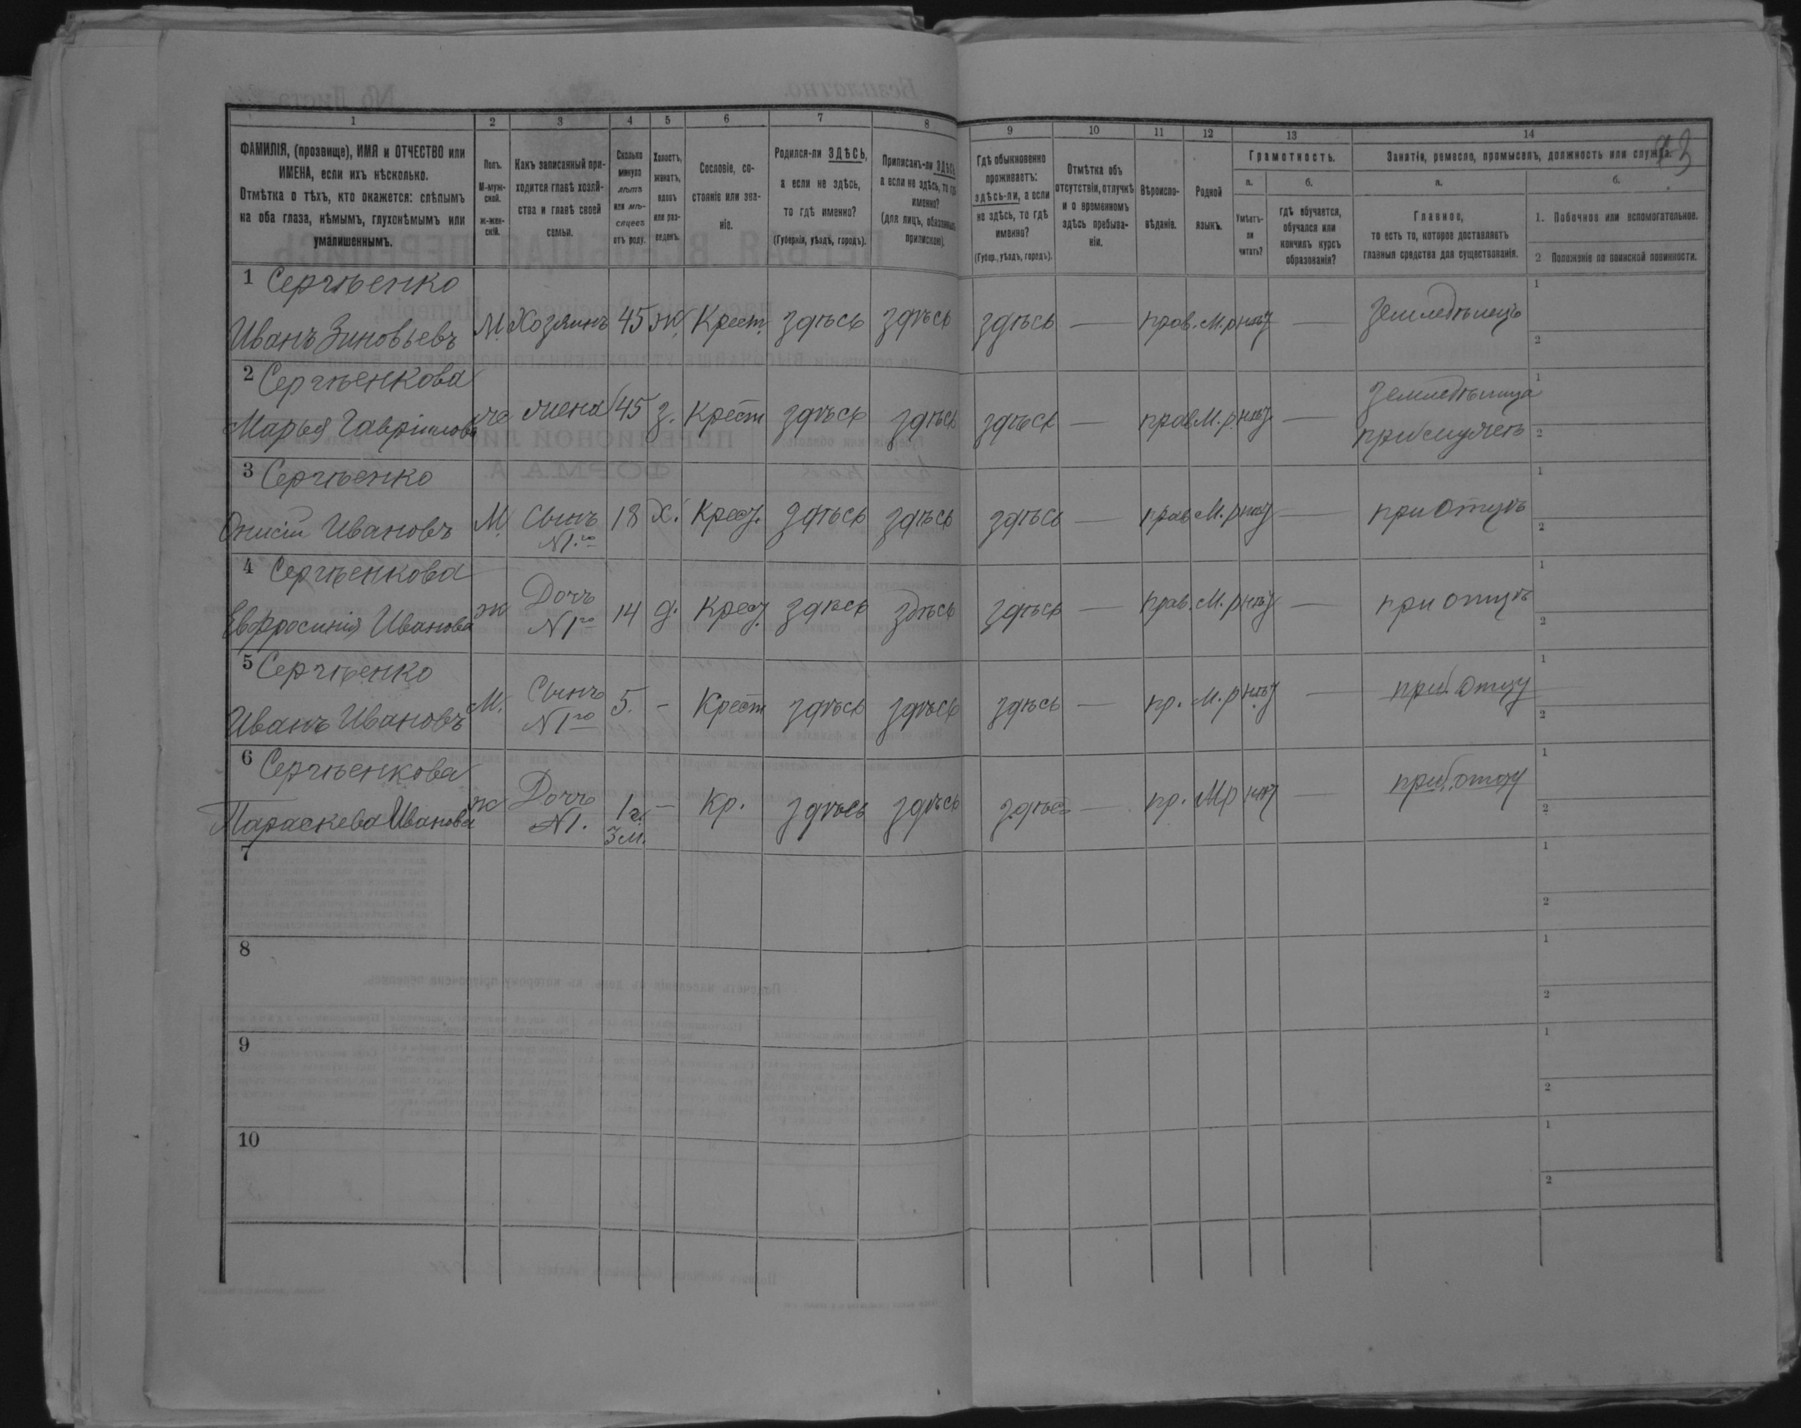 93
1 2 3 4 5 6 7 8 9 10 11 12 13 14
ФАМИЛІЯ, (прозвище), ИМЯ и ОТЧЕСТВО или
ИМЕНА, если ихъ нѣсколько.
Отмѣтка о тѣхъ, кто окажется: слѣпымъ
на оба глаза, нѣмымъ, глухонѣмымъ или
умалишеннымъ.
Полъ.
М-муж-
ской.
ж-жен-
скій.
Какъ записанный при-
ходится главѣ хозяй-
ства и главѣ своей
семьи.
Сколько
минуло
лѣтъ
или мѣ-
сяцевъ
отъ роду.
Холостъ,
женатъ,
вдовъ
или раз-
веденъ.
Сословіе, со-
стояніе или зва-
ніе.
Родился-ли ЗДѢСЬ,
а если не здѣсь,
то гдѣ именно?
(Губернія, уѣздъ, городъ).
Приписанъ-ли ЗДѢСЬ,
а если не здѣсь, то гдѣ
именно?
(для лицъ, обязанныхъ
припиской).
Гдѣ обыкновенно
проживаетъ:
здѣсь-ли, а если
не здѣсь, то гдѣ
именно?
(Губер., уѣздъ, городъ).
Отмѣтка объ
отсутствіи, отлучкѣ
и о временномъ
здѣсь пребыва-
ніи.
Вѣроиспо-
вѣданіе.
Родной
языкъ.
Грамотность.
а.
Умѣетъ-
ли
читать?
б.
гдѣ обучается,
обучался или
кончилъ курсъ
образованія?
Занятіе, ремесло, промыселъ, должность или служба.
а.
Главное,
то есть то, которое доставляетъ
главныя средства для существованія.
б.
1. Побочное или вспомогательное.
2 Положеніе по воинской повинности.
1 Сергѣенко
Иванъ Зиновьевъ М. Хозяинъ 45 ж. Крест. здѣсь здѣсь здѣсь — прав. М.р нѣт — Земледѣлецъ 1 2
2 Сергѣенкова
Марья Гавріилова же жена 45 з. Крест здѣсь здѣсь здѣсь — прав М.р нѣт — Земледѣлица 1 2
3 Сергѣенко
Онисій Ивановъ М. Сынъ 18 х. Крест. здѣсь здѣсь здѣсь — прав М.р нѣт — при отцѣ 1 2
N 1.го
4 Сергѣенкова
Евфросинія Иванова ж Дочъ 14 д. Крест. здѣсь здѣсь здѣсь — прав. М.р нѣт — при отцѣ 1 2
N 1го
5 Сергѣенко
Иванъ Ивановъ М. Сынъ 5. – Крест здѣсь здѣсь здѣсь — пр. М.р нѣт — при отцу 1 2
N 1го
6 Сергѣенкова
Параскева Иванова ж Дочъ 1 г. – Кр. здѣсь здѣсь здѣсь — пр. М.р нѣт — при отцу 1 2
N 1. 3 м.
7 1 2
8 1 2
9 1 2
10 1 2